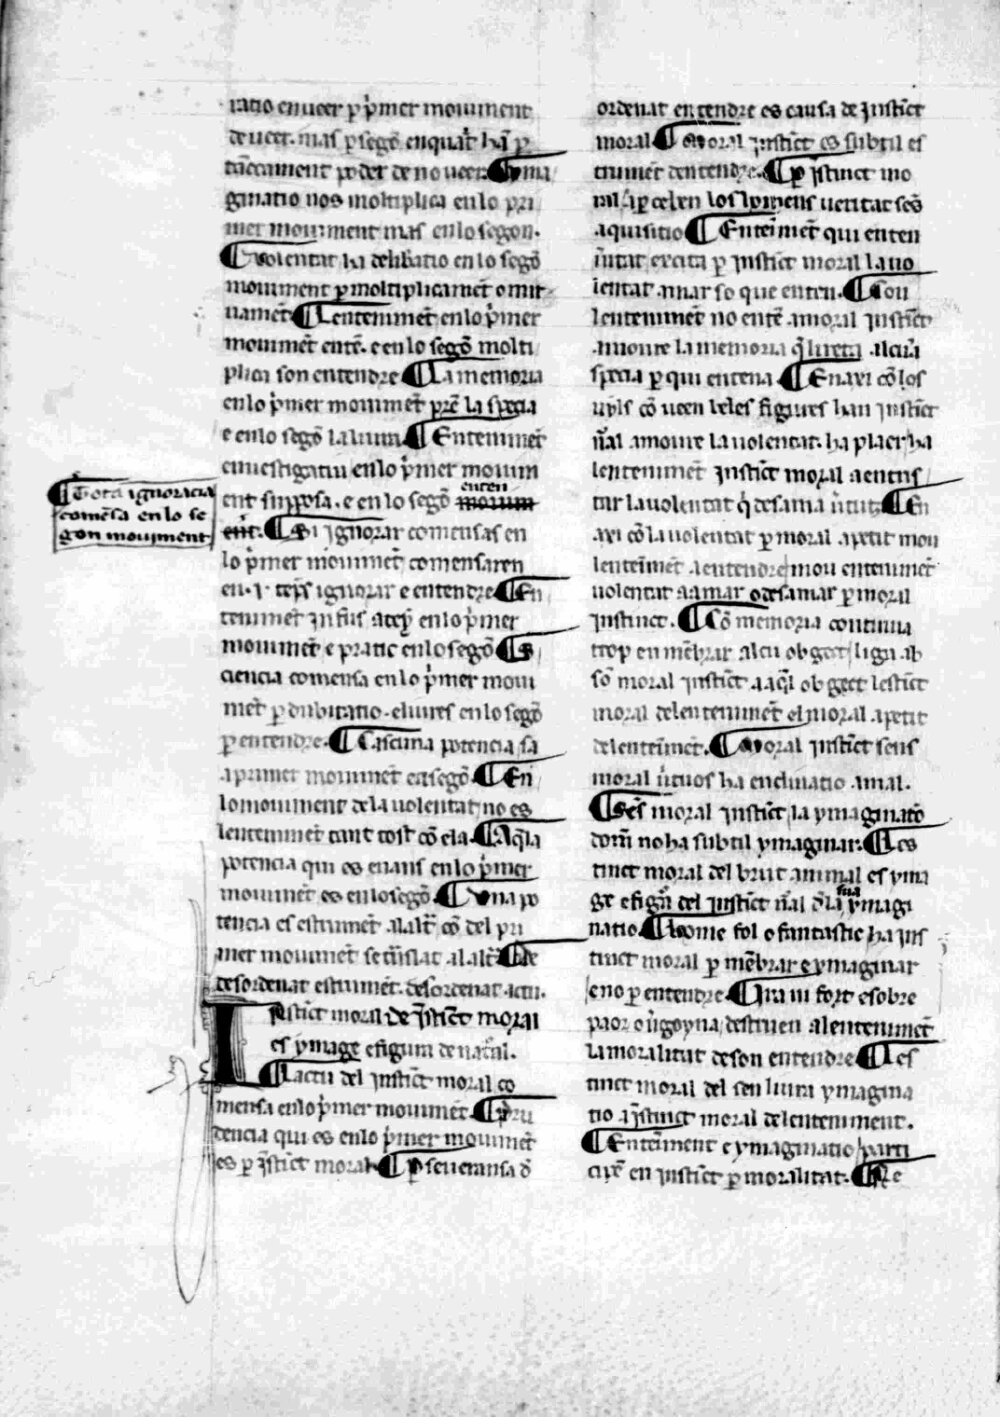 ratio en ueer ꝑ p̍mer mouiment
de ueer. mas ꝑ segō en quāt ha ꝑ
mouiment poder de no ueer. ¶ yma
ginatio nos moltiplica en lo pri
mer mouiment mas en lo segon.
¶ volentat ha delib̄atio en lo segō
mouiment ꝑ moltiplicamēt o mir
namēt ¶ Lenteniment̄ en lo p̍mer
mouimēt entē. e en lo segō molti
plica son entendre ¶ La memoria
en lo p̍mer mouimēt prē la specia
e en lo segō la liura ¶ Entenimēt
enuestigatiu en lo p̍mer mouim
ent supposa. e en lo segō enten
ent. ¶ Si ignorar comensas en
lo p̍mer mouimēt comensaren
en .i. tēps ignorar e entendre ¶ En
tenimēt en lo p̍mer
mouimēt e pratic en lo segō ¶ S
ciencia comensa en lo p̍mer moui
mēt ꝑ dubitatio. e liures en lo segō
ꝑ entendre. ¶ Cascuna potencia sa
a primer mouimēt e a segō. ¶ En
lo mouiment de la uolentat no es
lentenimēt tant tost cō ela. ¶ Aq̄la
potencia qui es enans en lo p̍mer
mouimēt es en lo segō. ¶ Vna po
tencia es estrumēt al alt̄ cō del pri
mer mouimēt al alt̄ ¶ De
desordenat estrumēt. desordenat actu.
Instīct moral. De īstīct moral
es ymage e figura de nat̄al.
¶ Lactu del instīct moral co
mensa en lo p̍mer mouimēt. ¶ Pru
dencia qui es en lo p̍mer mouimēt
es ꝑ īstīct moral. ¶ Perseueransa d̄
¶ Tota ignorācia
comēsa en lo se
gon mouiment
ordenat entendre es causa de instīct
moral ¶ Moral instīct es subtil es
trumēt dentendre. ¶ Per īstinct mo
ral aꝑcelen los homens ueritat ses
aquisitio ¶ Entenīmēt qui enten
u̍itat excita ꝑ instīct moral la uo
lentat amar so que enten. ¶ Con
lentenimēt no entē a moral instīct
a moure la memoria q̄ li reta alcūa
specia ꝑ qui entena ¶ Enaxi cō los
uyls cō ueen beles figures han instīct
n̄al a moure la uolentat. ha plaer ha
lentenimēt instīct moral a entris
tar la uolentat q̄ desama u̍tutz ¶ En
axi cō la uolentat ꝑ moral apetit mou
lentenīmēt a entendre mou entenimēt
uolentat a amar o desamar ꝑ moral
instinct. ¶ Cō memoria continua
trop en mēbrar alcū obgect liga ab
sō moral instīct a aq̄l obgect lestīct
moral del entenimēt el moral apetit
del entenīmēt. ¶ Moral instīct sens
moral u̍tuos ha enclinatio a mal.
¶ Sēs moral instīct la ymaginatō
dom̄ no ha subtil ymaginar. ¶ Les
tinct moral del brut animal es yma
ge e figūa del instīct n̄al d̄ la sua ymagi
natio. ¶ Home fol o fantastic ha ins
tinct moral ꝑ mēbrar e ymaginar
e no ꝑ entendre ¶ Ira m fort e sobre
paor o u̍goyna destruen al entenimēt
la moralitat de son entendre ¶ Les
tinct moral del sen liura ymagina
tio a īstinct moral del enteniment.
¶ Entenīment e ymaginatio parti
cipē en instīct ꝑ moralitat. ¶ Re